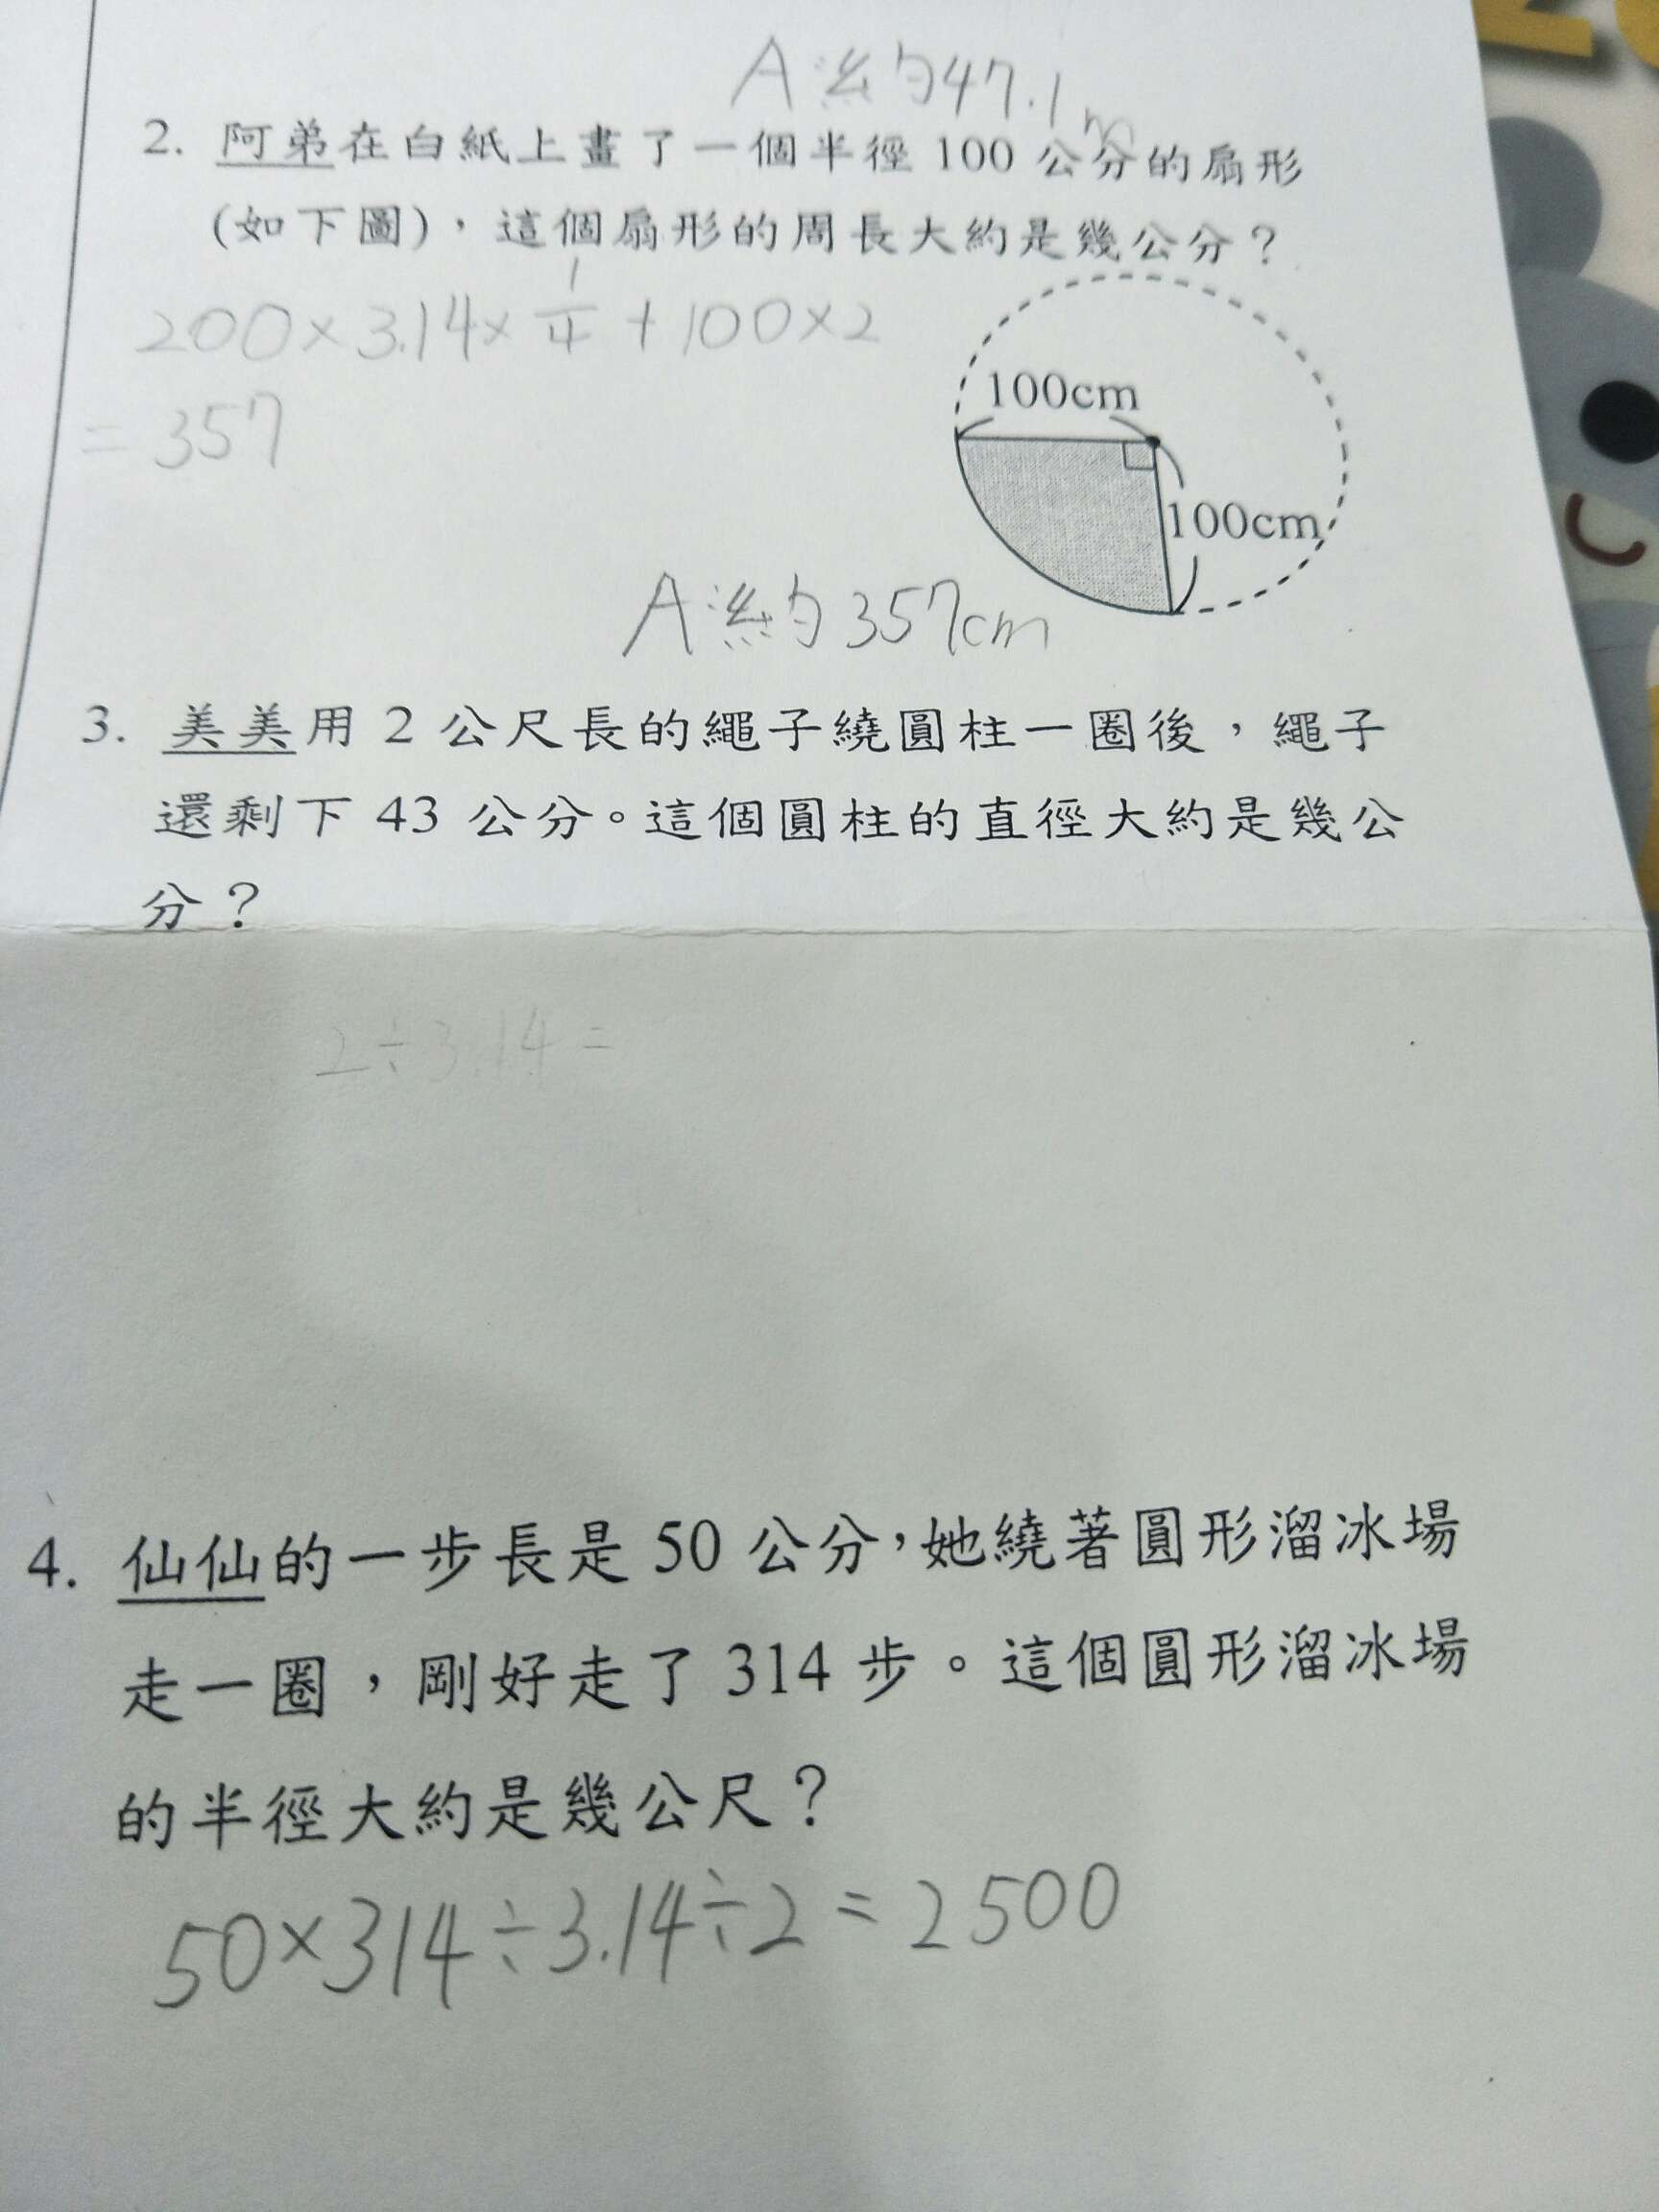 A：約47.1m
2. 阿弟在白紙上畫了一個半徑 100 公分的扇形
(如下圖)，這個扇形的周長大約是幾公分？
200×3.14×1/4+100×2
=357
100cm
100cm
A：約357cm
3. 美美用 2 公尺長的繩子繞圓柱一圈後，繩子
還剩下 43 公分。這個圓柱的直徑大約是幾公
分？
2÷3.14=
4. 仙仙的一步長是 50 公分，她繞著圓形溜冰場
走一圈，剛好走了 314 步。這個圓形溜冰場
的半徑大約是幾公尺？
50×314÷3.14÷2=2500